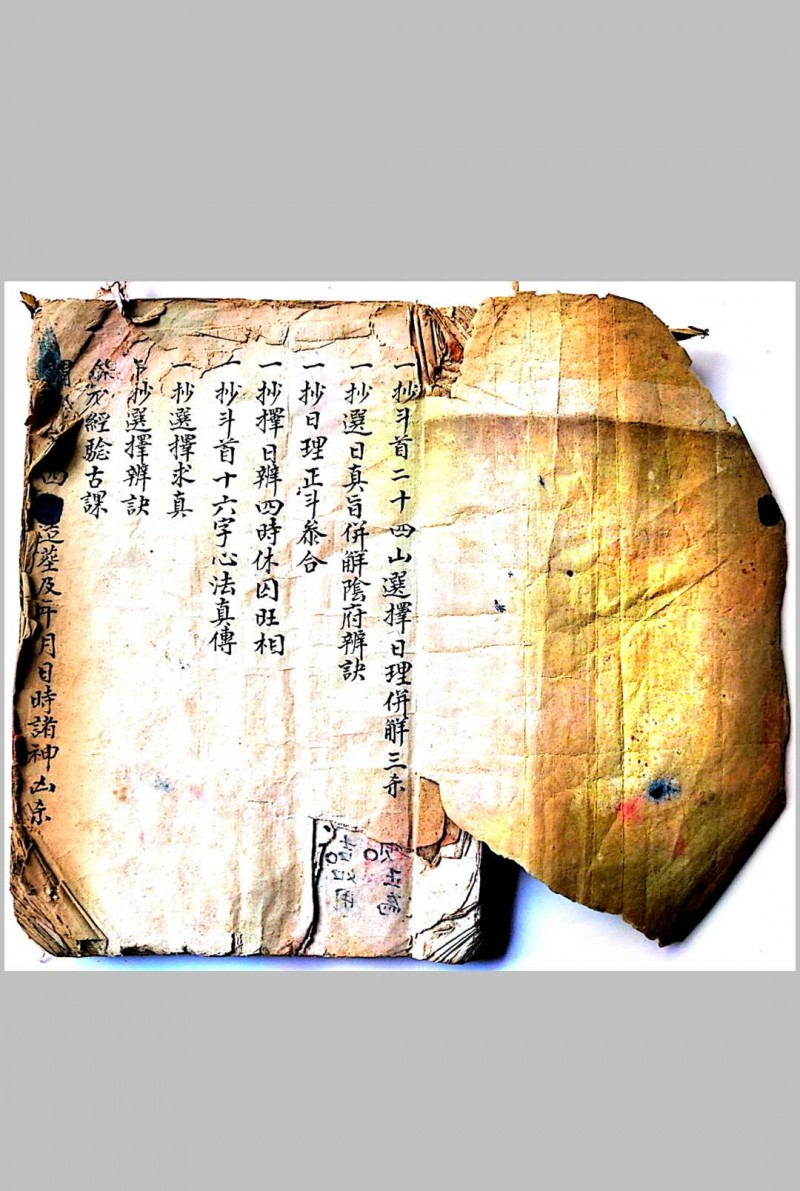 一抄斗首二十四山選擇日理併解三条
一抄選日真旨併解陰府辨訣
一抄日理正斗叅合
一抄擇日辨四時休囚旺相
一抄斗首十六字心法真傳
一抄選擇求真
抄選擇辨訣
經驗古課
造塟及年月日時諸神凶条